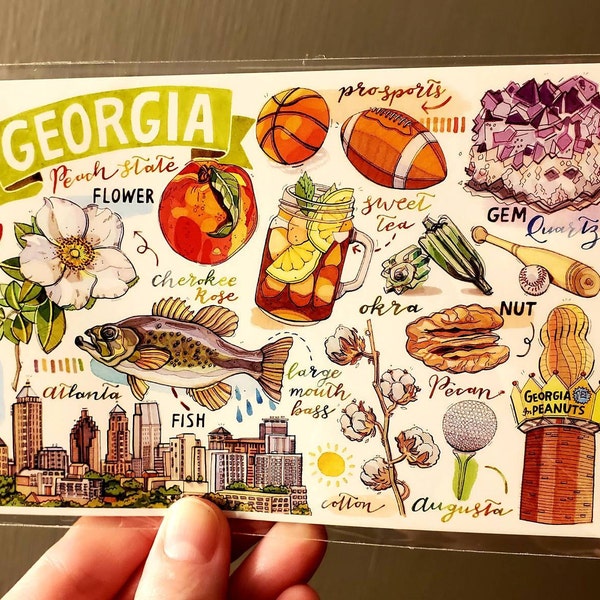 GEORGIA
Peach State
FLOWER
cherokee
rose
pro sports
sweet
tea
GEM
Quartz
okra
NUT
Pecan
large
mouth
bass
FISH
atlanta
cotton
augusta
GEORGIA
PEANUTS